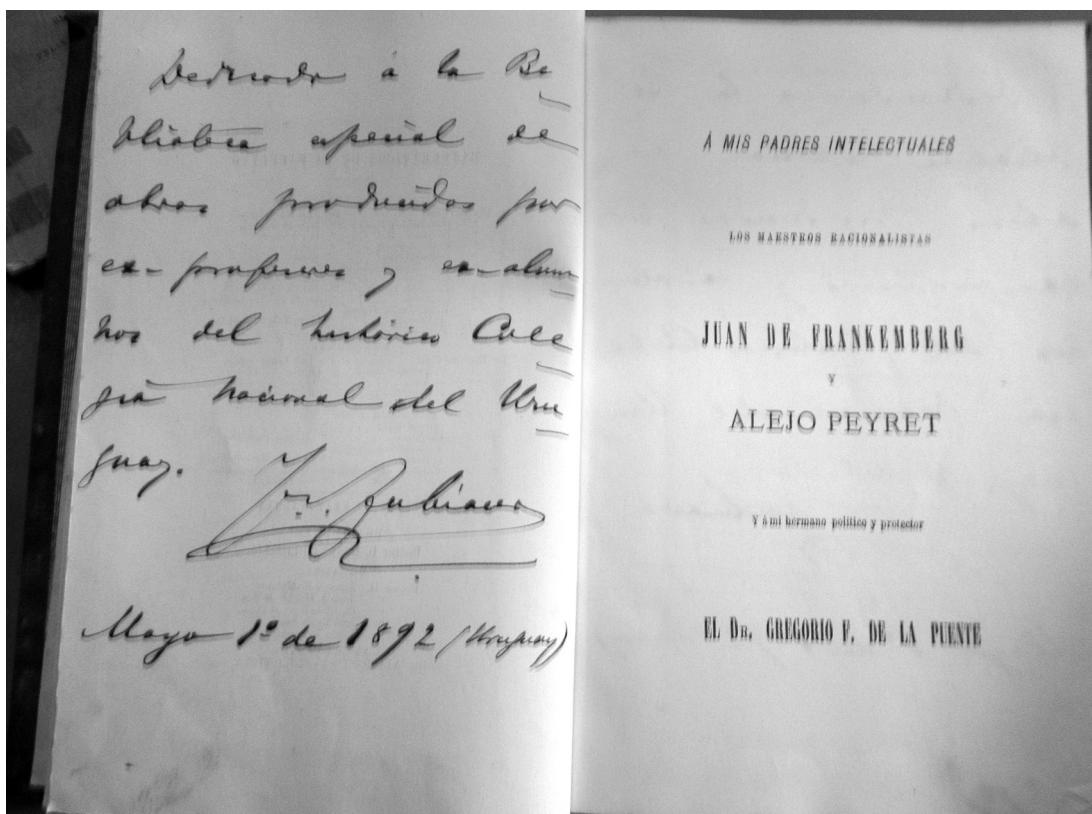 Dedicado á la Bi
blioteca especial de
obras producidas por
ex-profesores y ex-alum
nos del histórico Cole
gio Nacional del Uru
guay.
Zubiaur
Mayo 1º de 1892 (Uruguay)
Á MIS PADRES INTELECTUALES
LOS MAESTROS RACIONALISTAS
JUAN DE FRANKEMBERG
Y
ALEJO PEYRET
Y á mi hermano político y protector
EL DR. GREGORIO F. DE LA PUENTE